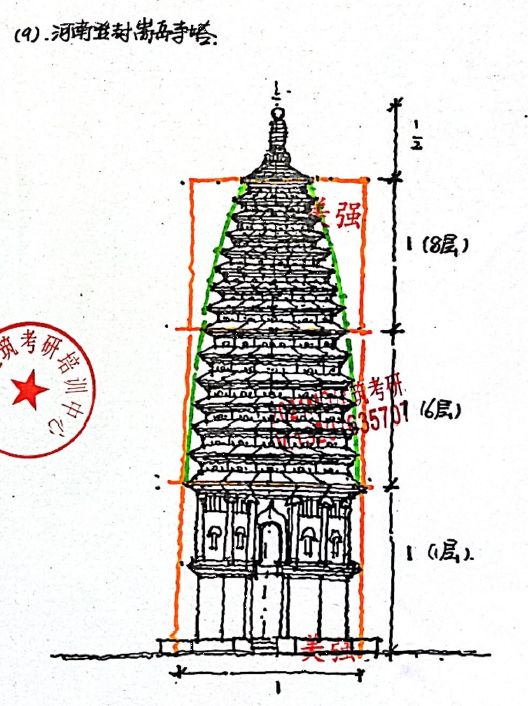 (9).河南登封嵩岳寺塔.
1/2
美强
1 (8层)
筑考研培训中心
筑考研
1 (6层)
1 (1层).
美强
1